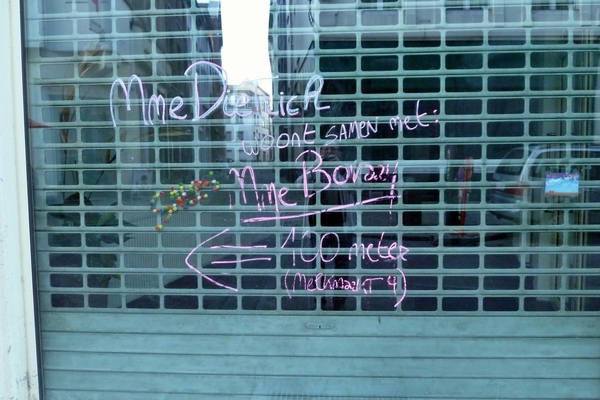 Mme Dietrich
woont samen met:
Mme Bovary!!
100 meter
(Melkmarkt 4)